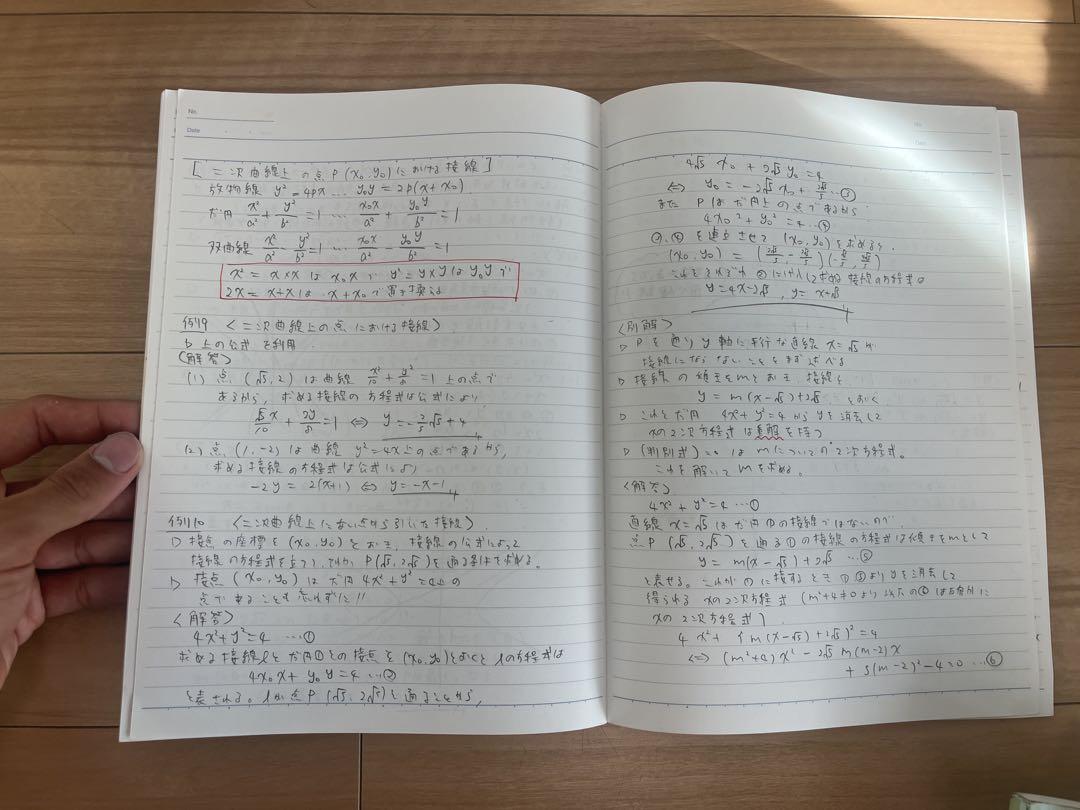 No.
Date
[二次曲線上の点P(x₀,y₀)における接線]
放物線 y²=4px … y₀y=2p(x+x₀)
だ円 x²/a²+y²/b²=1 … x₀x/a²+y₀y/b²=1
双曲線 x²/a²-y²/b²=1 … x₀x/a²-y₀y/b²=1
x²=x×xはx₀xで y²=y×yはy₀yで
2x=x+xはx+x₀で
例19 〈二次曲線上の点における接線〉
▷上の公式を利用
(解答)
(1) 点(√5,2)は曲線 x²/10+y²/8=1上の点で
あるから、求める接線の方程式は公式により
√5x/10+2y/8=1 ⇔ y=-2/√5x+4
(2) 点(1,-2)は曲線 y²=4x上の点であるから,
求める接線の方程式は公式により
-2y=2(x+1) ⇔ y=-x-1
例110 〈二次曲線上にない点から引いた接線〉
▷接点の座標を(x₀,y₀)とおき、接線の公式によって
接線の方程式を立て、それが P(√5,2√5)を通る条件を求める。
▷ 接点(x₀,y₀)はだ円 4x²+y²=4上の
点であることも忘れずに!!
〈解答〉
4x²+y²=4 …①
求める接線lとだ円①との接点を(x₀,y₀)とおくとlの方程式は
4x₀x+y₀y=4 …②
と表される。lが点P(√5,2√5)を通ることから,
No.
Date
4√5x₀+2√5y₀=4
⇔ y₀=-2x₀+2/√5 …③
また Pはだ円上の点であるから
4x₀²+y₀²=4 …④
③,④を連立させて(x₀,y₀)を求めると
これをそれぞれ②に代入して求める接線の方程式は
y=4x-2√5, y=x+√5
〈別解〉
▷Pを通りy軸に平行な直線 x=√5が
接線にならないことをまず述べる
▷接線の傾きをmとおき、接線を
y=m(x-√5)+2√5 とおく
▷これとだ円 4x²+y²=4からyを消去して
xの2次方程式は重解を持つ
▷(判別式)=0はmについての2次方程式。
これを解いてmを求める。
〈解答〉
4x²+y²=4 …①
直線 x=√5はだ円①の接線ではないので,
点P(√5,2√5)を通る①の接線の方程式は傾きをmとして
y=m(x-√5)+2√5 …⑤
と表せる。これが①に接するとき①⑤よりyを消去して
得られるxの2次方程式(m²+4≠0より以下の⑥はたしかに
xの2次方程式)
4x²+{m(x-√5)+2√5}²=4
⇔(m²+4)x²-2√5m(m-2)x
+5(m-2)²-4=0 …⑥